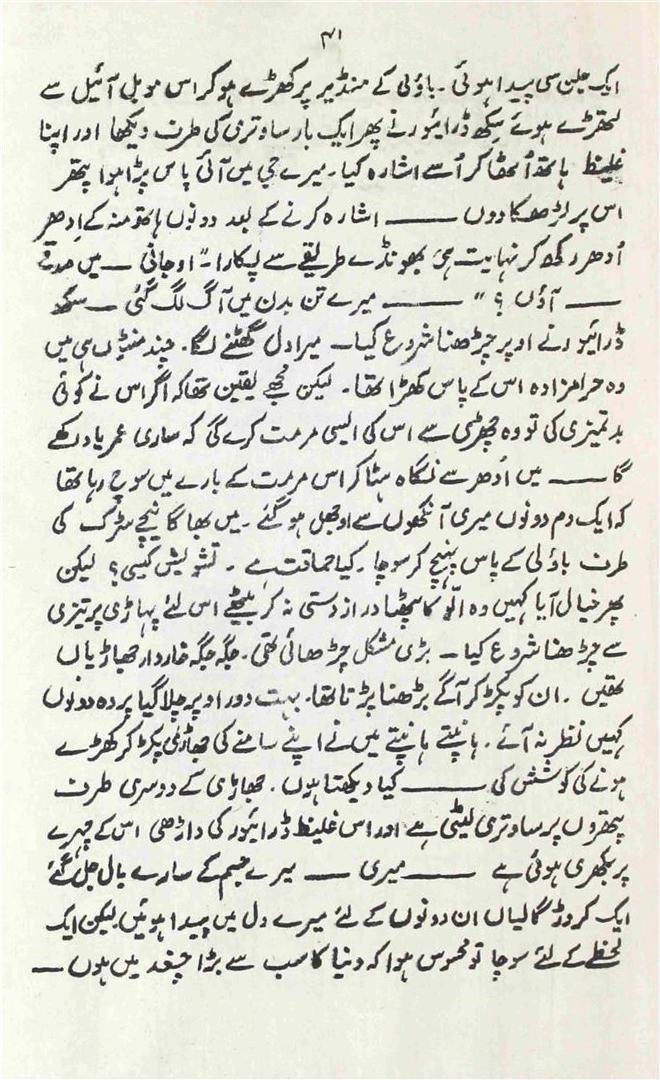 ۴۱
ایک جلن سی پیدا ہوئی۔ باؤلی کے منڈیر پر کھڑے ہو کر اس موبل آئیل سے
لتھڑے ہوئے سِکھ ڈرائیور نے پھر ایک بار ساوتری کی طرف دیکھا اور اپنا
غلیظ ہاتھ اُٹھا کر اُسے اشارہ کیا۔ میرے جی میں آئی پاس پڑا ہوا پتھر
اس پر لڑھکا دوں ——— اشارہ کرنے کے بعد دونوں ہاتھ منہ کے اِدھر
اُدھر رکھ کر نہایت ہی بھونڈے طریقے سے پکارا۔ "او جانی — میں صدقے
— آؤں ؟" ——— میرے تن بدن میں آگ لگ گئی — سکھ
ڈرائیور نے اوپر چڑھنا شروع کیا — میرا دل گھٹنے لگا۔ چند منٹوں ہی میں
وہ حرامزادہ اس کے پاس کھڑا تھا۔ لیکن مجھے یقین تھا کہ اگر اس نے کوئی
بدتمیزی کی تو وہ چھڑی سے اس کی ایسی مرمت کرے گی کہ ساری عمر یاد رکھے
گا ——— میں اُدھر سے نگاہ ہٹا کر اس مرمت کے بارے میں سوچ رہا تھا
کہ ایک دم دونوں میری آنکھوں سے اوجھل ہو گئے ۔ میں بھاگا نیچے سڑک کی
طرف باؤلی کے پاس پہنچ کر سوچا۔ کیا حماقت ہے ۔ تشویش کیسی ؟ لیکن
پھر خیال آیا کہیں وہ الّو کا پٹھا دراز دستی نہ کر بیٹھے اس لئے پہاڑی پر تیزی
سے چڑھنا شروع کیا — بڑی مشکل چڑھائی تھی۔ جگہ جگہ خاردار جھاڑیاں
تھیں ۔ ان کو پکڑ کر آگے بڑھنا پڑتا تھا۔ بہت دور اوپر چلا گیا پر وہ دونوں
کہیں نظر نہ آئے ۔ ہانپتے ہانپتے میں نے اپنے سامنے کی جھاڑی پکڑ کر کھڑے
ہونے کی کوشش کی ——— کیا دیکھتا ہوں ۔ جھاڑی کے دوسری طرف
پتھروں پر ساوتری لیٹی ہے اور اس غلیظ ڈرائیور کی داڑھی اس کے چہرے
پر بکھری ہوئی ہے ——— میری — میرے جسم کے سارے بال جل گئے
ایک کروڑ گالیاں ان دونوں کے لئے میرے دل میں پیدا ہوئیں لیکن ایک
لحظے کے لئے سوچا تو محسوس ہوا کہ دنیا کا سب سے بڑا چغد میں ہوں —